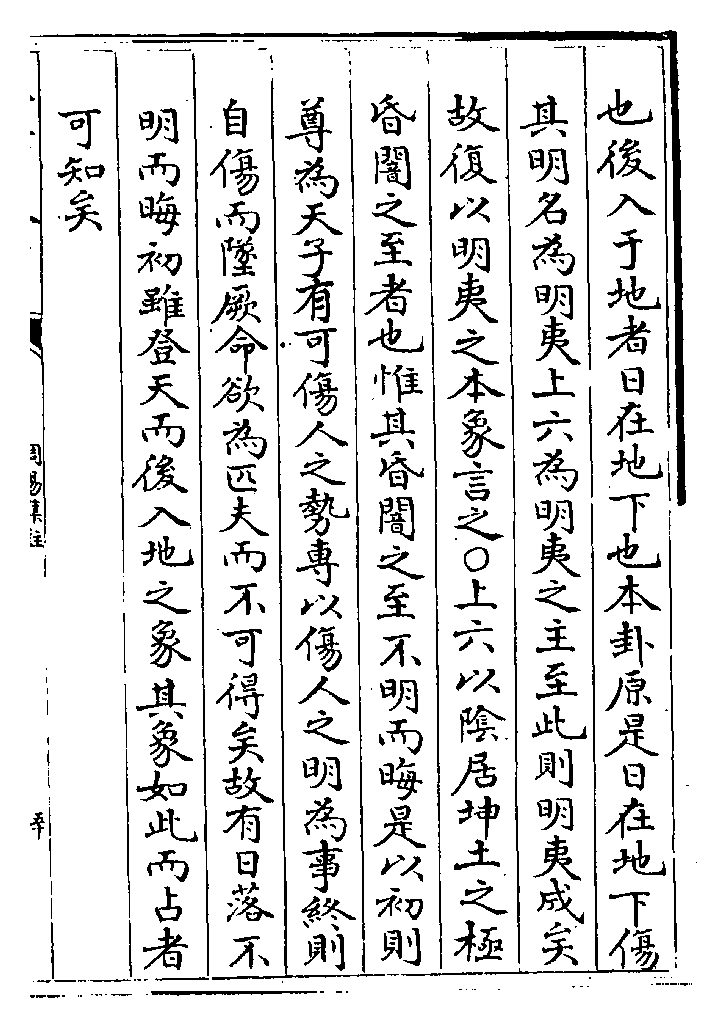 也後入于地者日在地下也本卦原是日在地下傷
其明名為明夷上六為明夷之主至此則明夷成矣
故復以明夷之本象言之〇上六以陰居坤土之極
昏闇之至者也惟其昏闇之至不明而晦是以初則
尊為天子有可傷人之勢專以傷人之明為事終則
自傷而墜厥命欲為匹夫而不可得矣故有日落不
明而晦初雖登天而後入地之象其象如此而占者
可知矣
周易集註